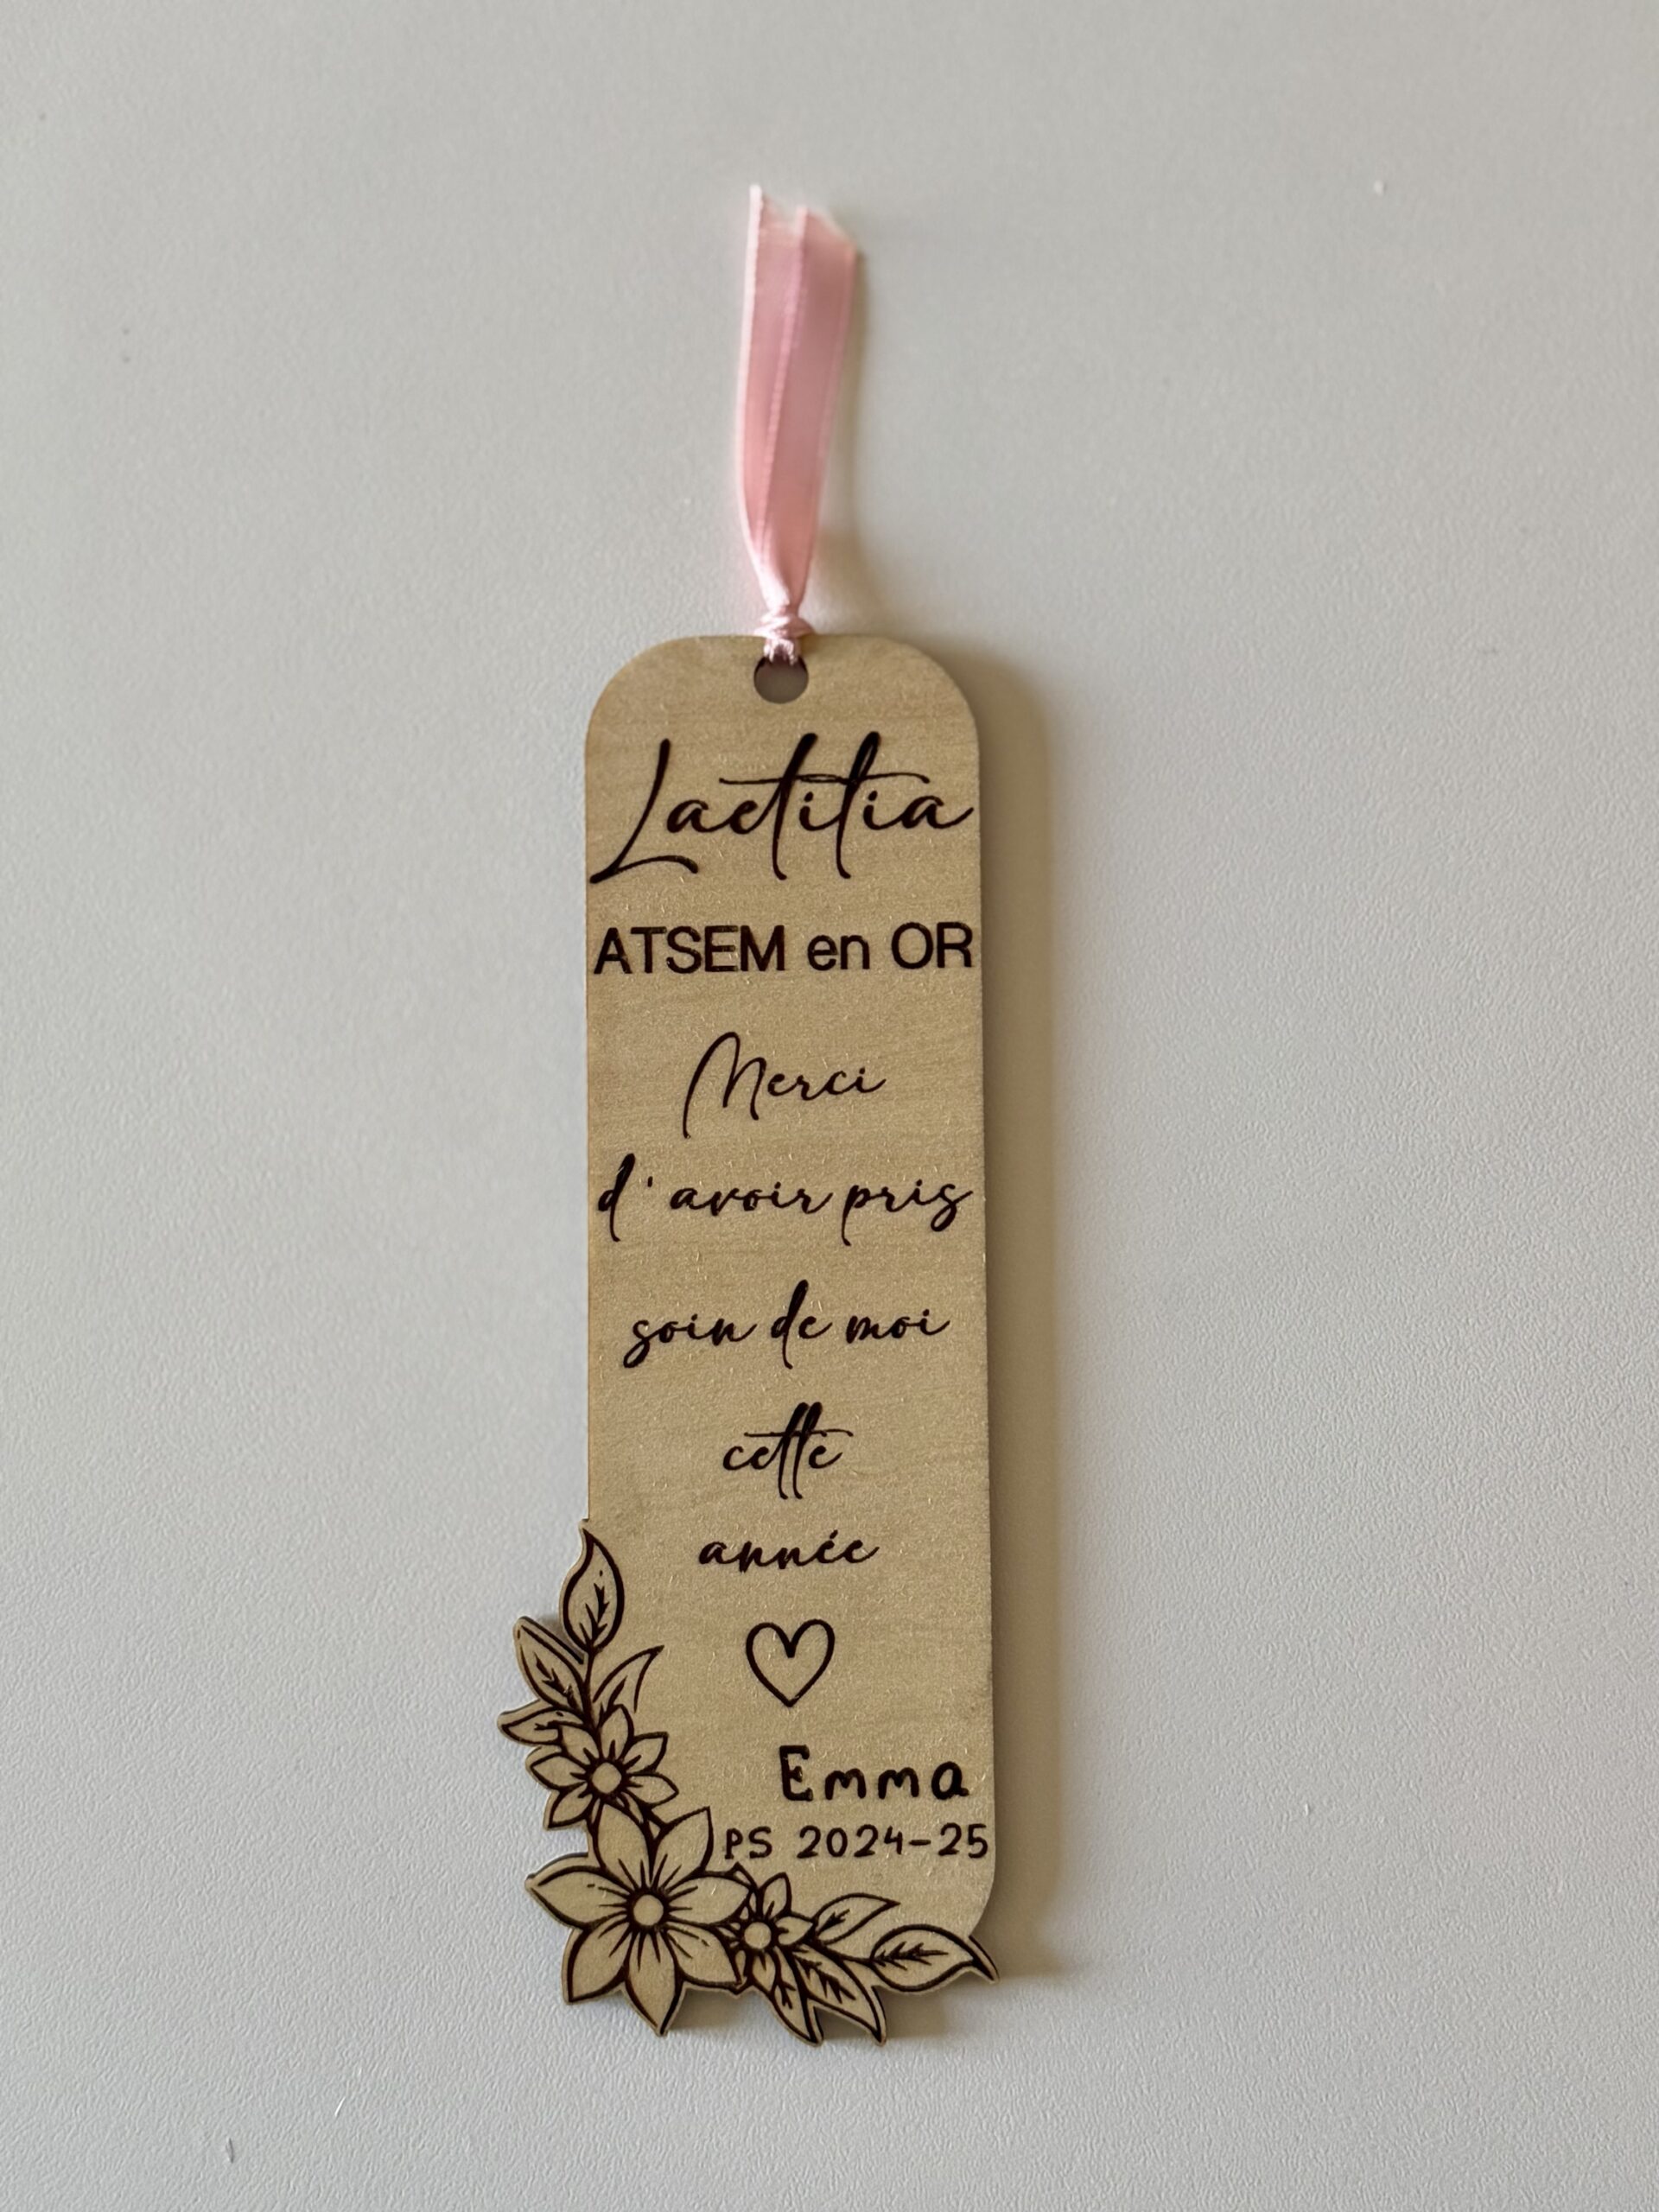 Laetitia
ATSEM en OR
Merci
d'avoir pris
soin de moi
cette
année
Emma
PS 2024-25